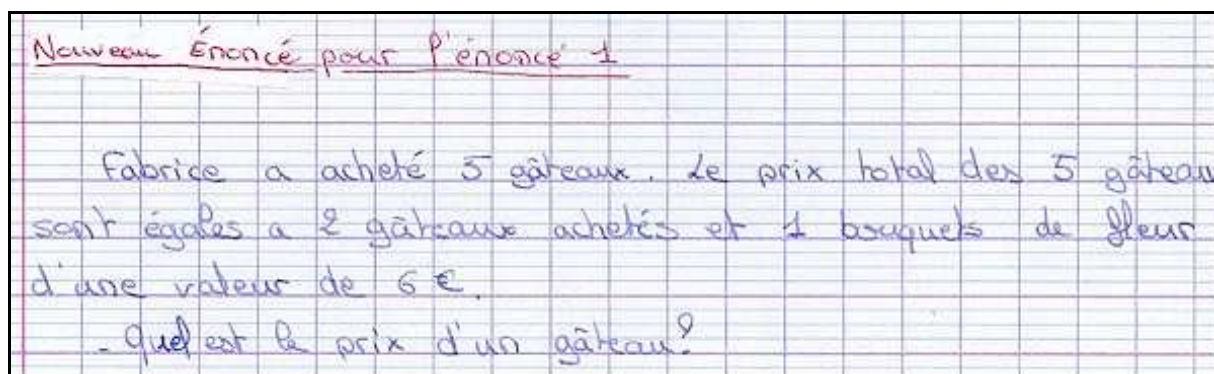 Nouveau Énoncé pour l'énoncé 1
Fabrice a acheté 5 gâteaux. Le prix total des 5 gâteau
sont égales a 2 gâteaux achetés et 1 bouquets de fleur
d'une valeur de 6 €.
- Quel est le prix d'un gâteau?